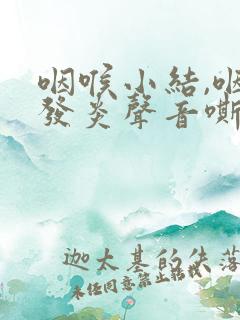 咽喉小結,咽
發炎聲音嘶
迦太基的失落
未经同意禁止转载